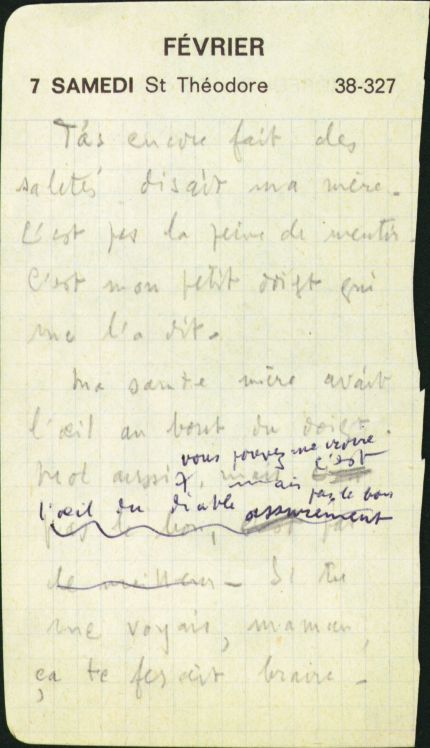 FÉVRIER
7 SAMEDI St Théodore 38-327
T'as encore fait des
saletés disait ma mère.
C'est pas la peine de mentir.
C'est mon petit doigt qui
me l'a dit.
Ma sainte mère avait
l'œil au bout du doigt.
vous pouvez me croire
Moi aussi, mais c'est
l'œil du diable assurément
pas le bon
pas le bon,
le meilleur. Si tu
me voyais, maman,
ça te ferait braire.